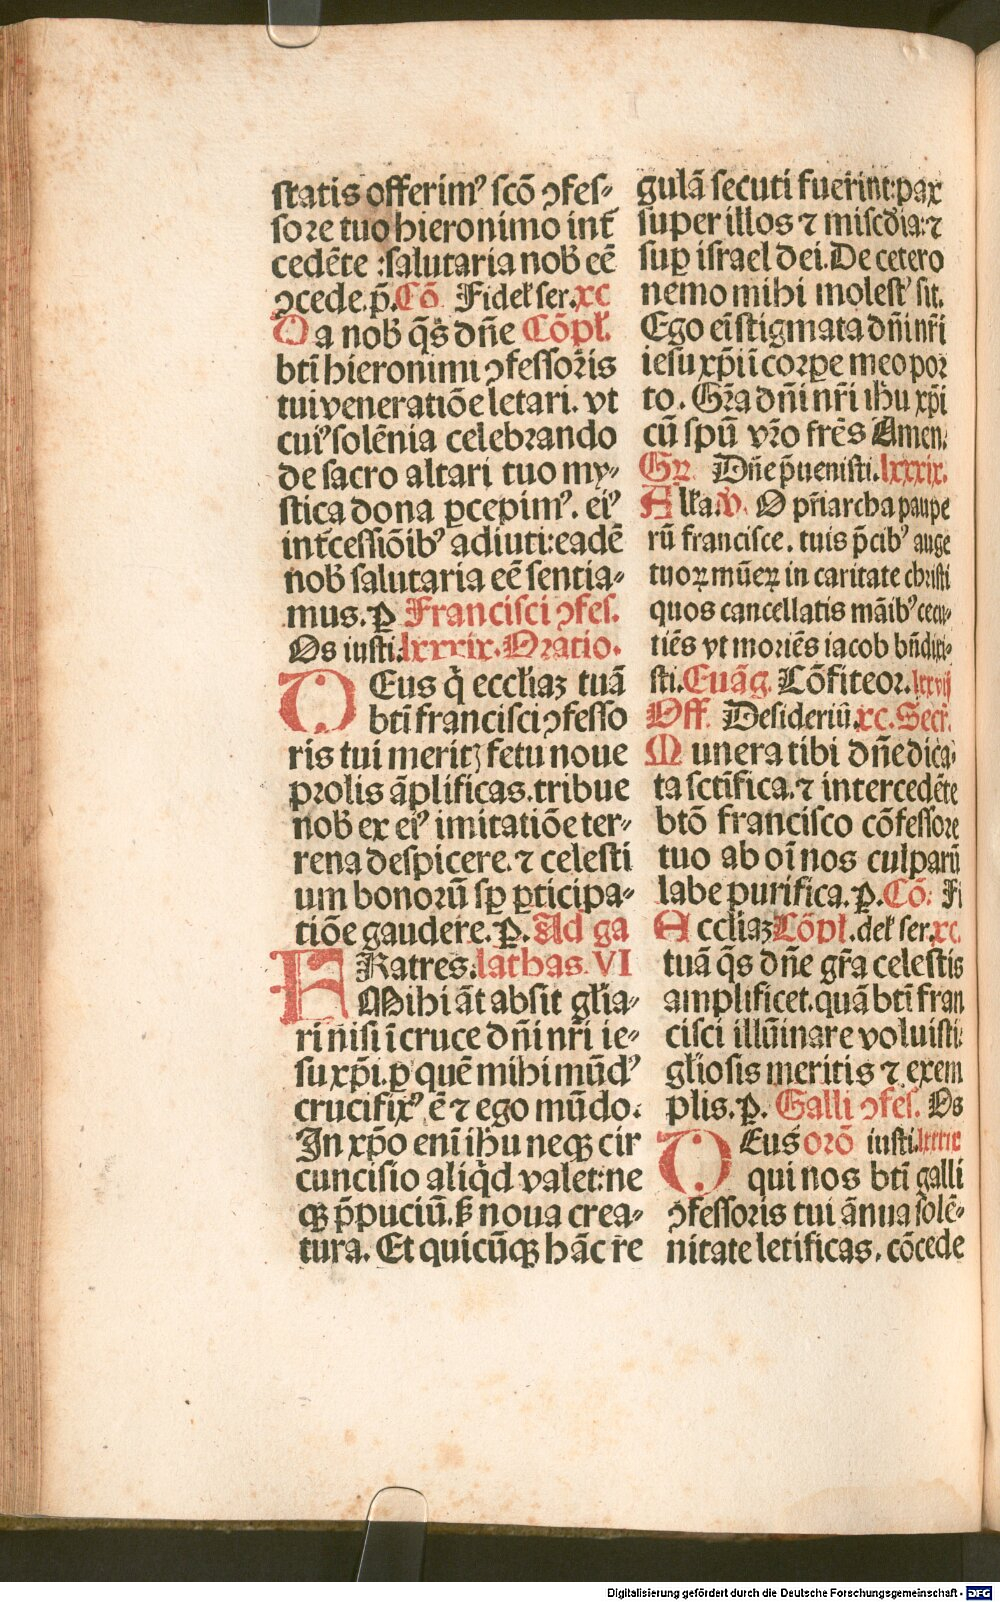 statis offerimꝰ scō ↄfes-
sore tuo hieronimo int̄
cedēte :salutaria nob̄ eē
ↄcede.p̄.Cō Fidel̓ ser.xc
Da nob̄ q̄s dn̄e Cōpl̓.
bt̄i hieronimi ↄfessoris
tui veneratiōe letari. vt
cuiꝰ solēnia celebrando
de sacro altari tuo my-
stica dona ꝑcepimꝰ. eiꝰ
int̄cessiōibꝰ adiuti:eadē
nob̄ salutaria eē sentia-
mus.ꝑ Francisci ↄfes.
Os iusti.lxxxix.Oratio.
DEus q̄ eccl̓iaꝫ tuā
bt̄i francisci ↄfesso
ris tui meritꝫ fetu noue
prolis āplificas.tribue
nob̄ ex eiꝰ imitatiōe ter-
rena despicere.⁊ celesti
um bonorū sꝑ ꝑticipa-
tiōe gaudere.ꝑ. Ad ga
FRatres. lathas. VI
Mihi āt absit gl̓ia-
ri nisi ī cruce dn̄i nr̄i ie-
su xp̄i.ꝑ quē mihi mūdꝰ
crucifixꝰ ē ⁊ ego mūdo.
In xp̄o enī ih̄u neqꝫ cir
cuncisio aliq̄d valet:ne
qꝫ p̄puciū.ẜ noua crea-
tura. Et quicūqꝫ hāc re
gulā secuti fuerint:pax
super illos ⁊ misc̄dia:⁊
suꝑ israel dei.De cetero
nemo mihi molestꝰ sit.
Ego eī stigmata dn̄i nr̄i
iesu xp̄i ī corpe meo por
to. Gr̄a dn̄i nr̄i ih̄u xp̄i
cū sp̄ū vr̄o frēs Amen.
Gꝛ̄. Dn̄e p̄uenisti.lxxxix.
All̓a.V̄. O pr̄iarcha paupe
rū francisce. tuis p̄cibꝰ auge
tuoꝝ mūeꝝ in caritate christi
quos cancellatis māibꝰ cecu-
tiēs vt moriēs iacob bn̄dixi-
sti.Euāg. Cōfiteor.lxxvij
Off. Desideriū.xc. Secr̄.
Munera tibi dn̄e dica-
ta sctīfica.⁊ intercedēte
btō francisco cōfessore
tuo ab oī nos culparū
labe purifica.ꝑ.Cō. Fi
Eccl̓iaꝫ Cōpl̓. del̓ ser.xc.
tuā q̄s dn̄e gr̄a celestis
amplificet.quā bt̄i fran
cisci illūinare voluisti.
gl̓iosis meritis ⁊ exem
plis.ꝑ. Galli ↄfes. Os
DEus orō iusti.lxxxix
qui nos bt̄i galli
ↄfessoris tui ānua solē-
nitate letificas. cōcede
Digitalisierung gefördert durch die Deutsche Forschungsgemeinschaft - DFG